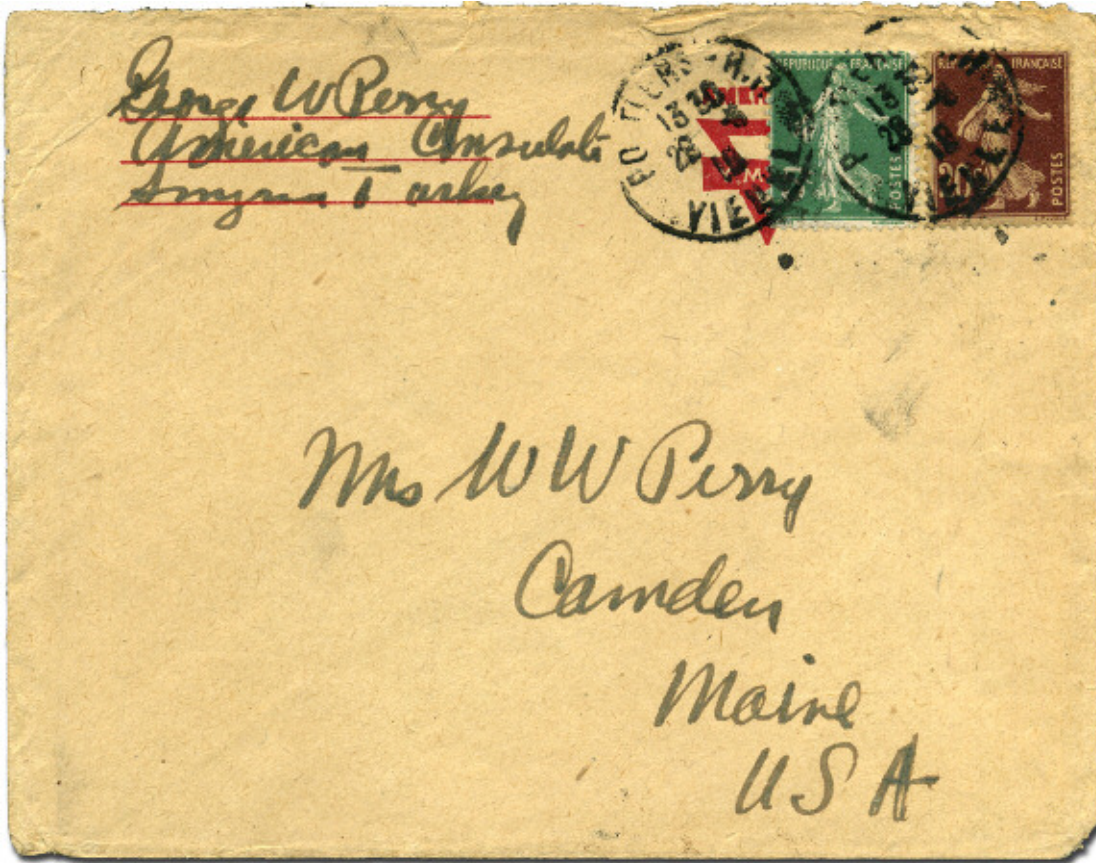 George W Perry
American Consulate
Smyrna Turkey
POITIERS - R.P.
13 35
28 - 19
VIENNE
REPUBLIQUE FRANÇAISE
POSTES
13
28 - 19
VIENNE
FRANÇAISE
20
POSTES
Mrs W W Perry
Camden
Maine
USA